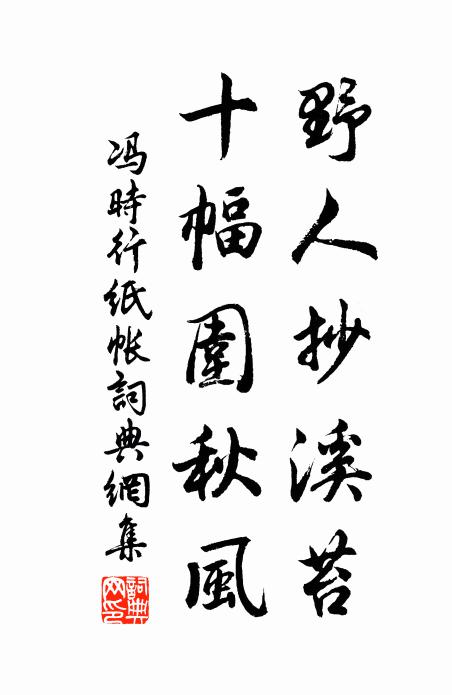 野人抄溪苔
十幅圍秋風
冯時行紙帐詞典網集
詞典网印